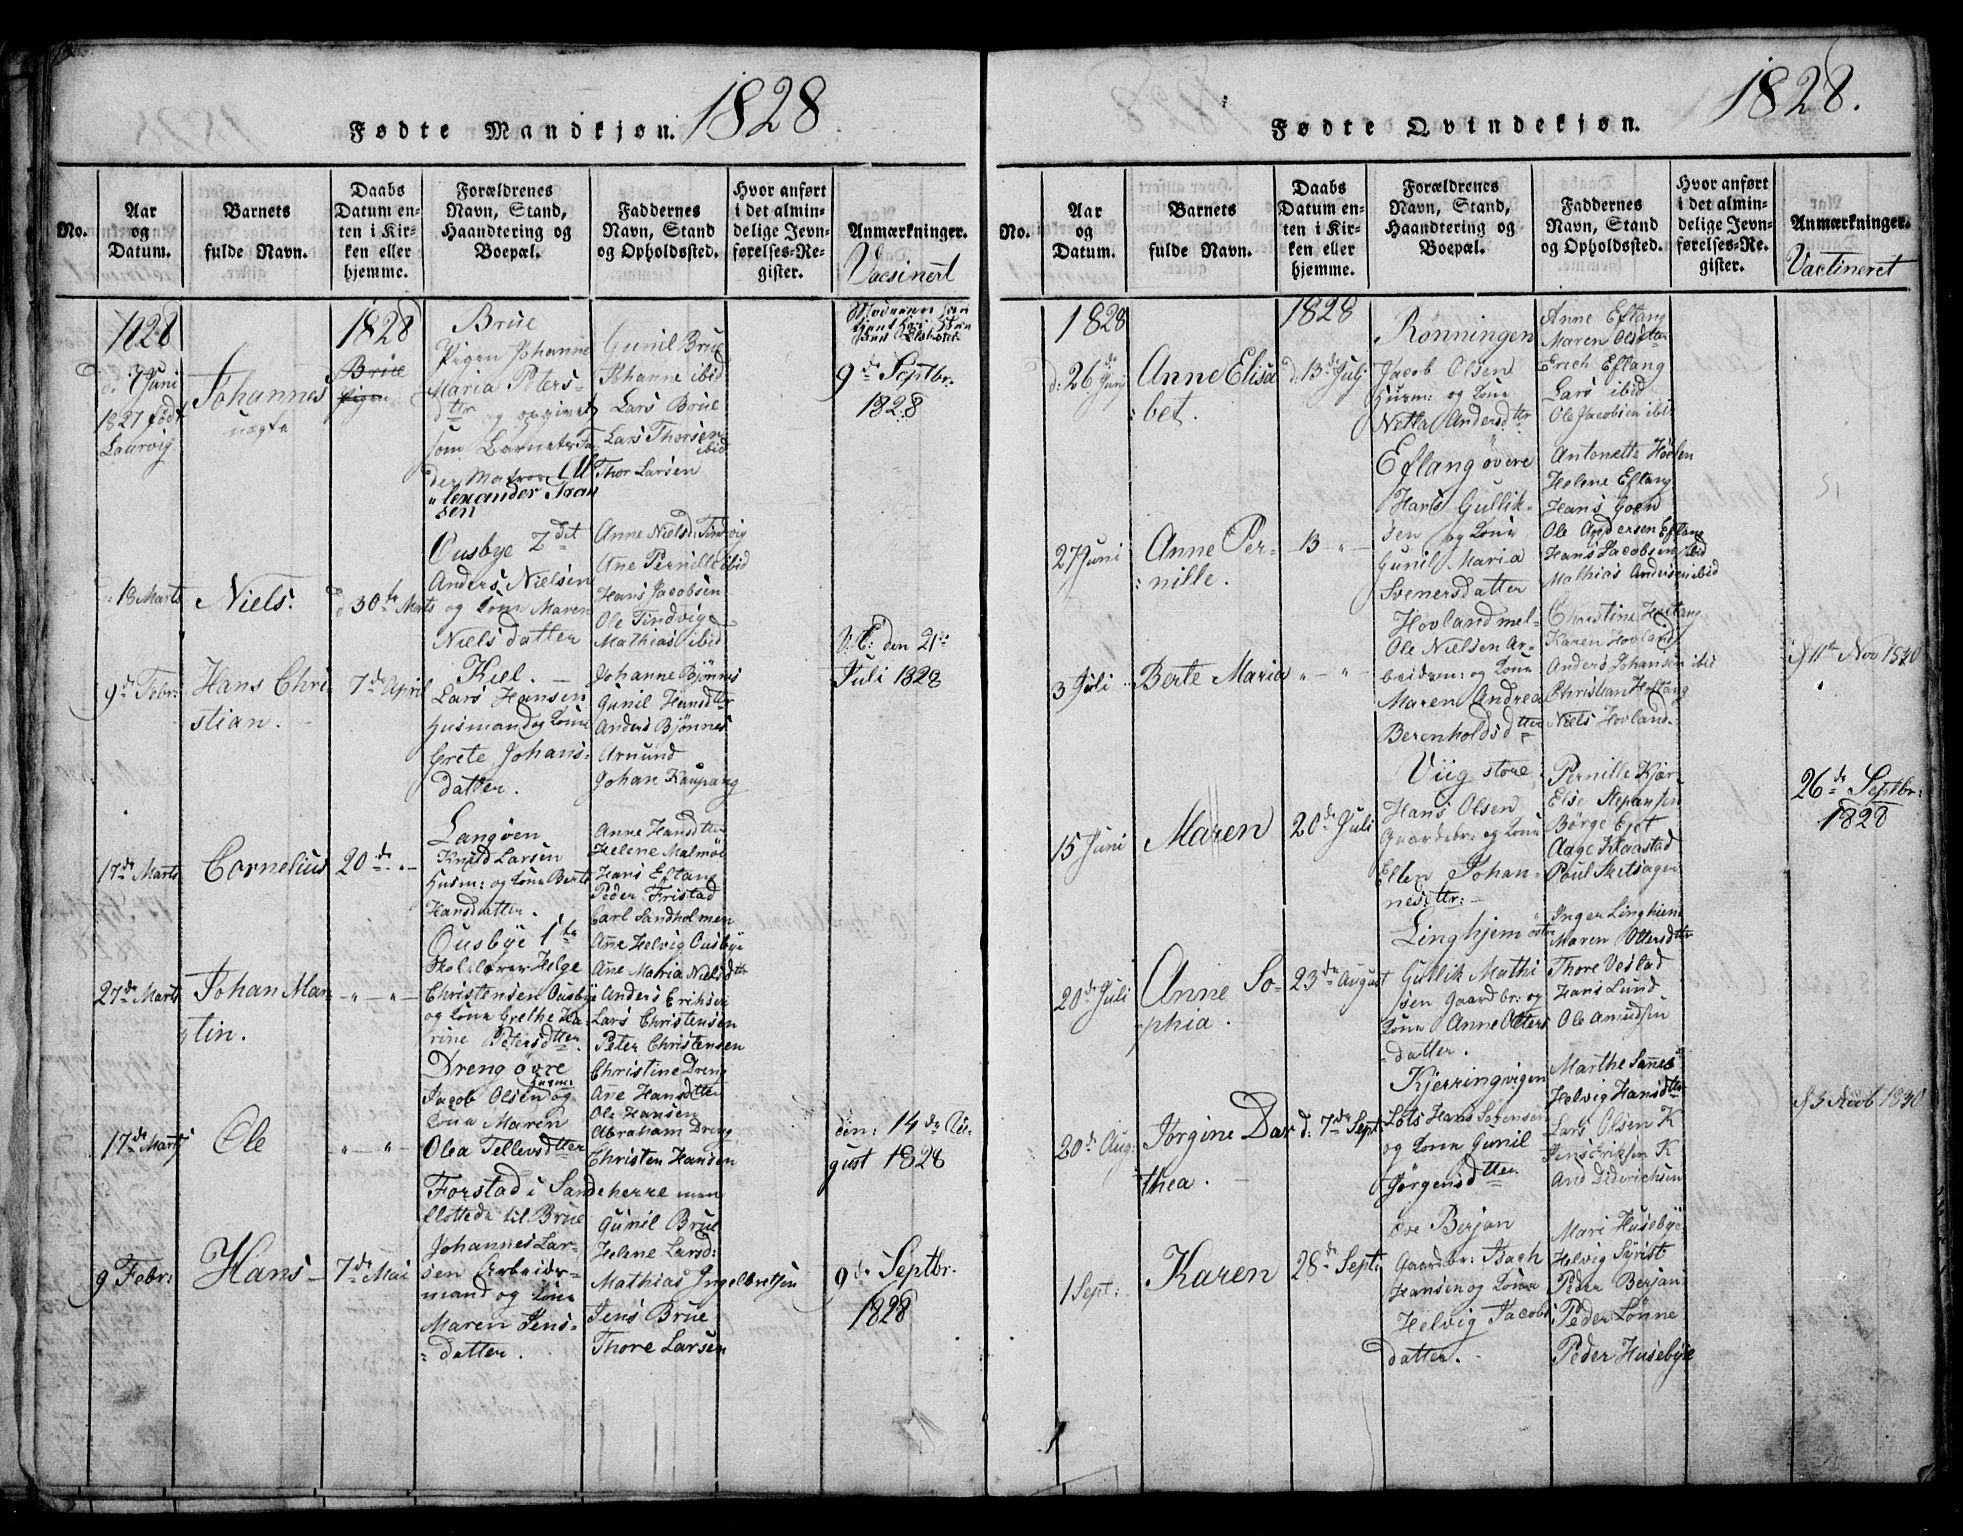 1828
Fødte Mandkjøn.
No.
Aar
og
Datum.
Barnets
fulde Navn.
Daabs
Datum en-
ten i Kir-
ken eller
hjemme.
Forældrenes
Navn, Stand,
Haandtering og
Boepæl.
Faddernes
Navn, Stand
og Opholdssted.
Hvor anført
i det almin-
delige Jevn-
førelses-Re-
gister.
Anmærkninger.
Vacsinert
1828
d: 7 Juni
1827 født
Laurvig
Johannes
uægte
1828
Brue
Pigen
Brue
Pigen Johanne
Maria Peters-
dtr og opgivet
som Barnets Fa-
der Matros Al
"lexander Tran
sen
Gunil Brue
Johanne ibid
Lars Brue
Lars Thorsen
ibid
Thor Larsen
9de Septbr.
1828
d: 13 Marts
Niels.
d 30te Marts
Ousbye 2det
Anders Nielsen
og Kone Maren
Nielsdatter
Anne Nielsd: Tindvig
Ane Pernille ibid
Hans Jacobsen
Ole Tindvig
Mathias ibid
9de Febr:
Hans Chri-
stian.
7de April
Kiel.
Lars Hansen
Husmand og Kone
Grete Johans-
datter.
Johanne Bjønnes
Gunil Hansdtr
Anders Bjønnes
Amund
Johan Kaupang
V.C: den 21de
Juli 1828
17de Marts
Cornelius
20de "-
Langøen
Knud Larsen
Husm: og Kone Berte
Hansdatter.
Anne Hansdtter
Helene Malmøe
Hans Eftang
Peder Fristad
Carl Sandholmen
27de Marts
Johan Mar-
tin.
-"-"-
Ousbye 1te
Skolelærer Helge
Christensen Ousbye
og Kone Grethe Ka-
rine Petersdtter.
Ane Helvig Ousbye
Ane Maria Nielsdtr
Anders Erihsen
Lars Christensen
Peter Christensen
17de Marts
Ole
"-"-
Dreng øvre
Husm:
Jacob Olsen og
Kone Maren
Olea Tellevsdtter
Christine Dreng
Ane Hansdtter
Ole Hansen
Abraham Dreng
Christen Hansen
den: 14de Au-
gust 1828
9 Febr:
Hans
7de Mai
Forstad i Sandeherre men
flottede til Brue
Johannes Lar-
sen Arbeider-
mand og Kone
Maren Jens-
datter.
Gunil Brue
Helene Larsd:
Mathias Ingelbretsen
Jens Brue
Thore Larsen
9de Septbr.
1828
1828.
Fødte Qvindekjøn.
No.
Aar
og
Datum.
Barnets
fulde Navn.
Daabs
Datum en-
ten i Kir-
ken eller
hjemme.
Forældrenes
Navn, Stand,
Haandtering og
Boepæl.
Faddernes
Navn, Stand
og Opholdssted.
Hvor anført
i det almin-
delige Jevn-
førelses-Re-
gister.
Anmærkninger.
Vactineret
1828
d: 26de Junij
Anne Elisa
bet.
1828
d: 13de Julj
Rønningen
Jacob Olsen
Husm: og Kone
Netta Andersdtr
Anne Eftang
Maren Olsdtter
Erich Eftang
Lars ibid
Ole Jacobsen ibid
27 Juni
Anne Per-
nille.
13 - " -
Eftang øvere
Hans Gullik-
sen og Kone
Gunil Maria
Svenersdatter
Antonette Høvlen
Helene Eftang
Hans Goen
Ole Andersen Eftang
Hans Jacobsen ibid
Mathias Andersen ibid
3 Juli
Berte Maria
"-"
Hovland mel-
Ole Nielsen Ar-
beidsm: og Kone
Maren Andrea
Berenholdsdtter
Christine Hoftang
Karen Hovland
Anders Johansen ibid
Christian Hoftang
Niels Hovland.
d 11te Nov 1830
15 Juni
Maren
20de Juli
Viig store
Hans Olsen
Gaardebr: og Kone
Ellen Johan-
nesdtr:
Pernille Kjær
Else Stepansen
Børge Ejet
Aage Skaastad
Poul Skitsager
26de Septbr:
1828
20de Juli
Anne So-
phia.
23de August
Linghjem østre
Gullik Mathi
sen Gaardbr: og
Kone Anne Otters
datter.
Inger Linghiem
Maren Ottersdtr
Thore Vestad
Hans Lund
Ole Amudsen
20de Aug:
Jørgine Dor
thea.
d: 7de Sept:
Kjerringvigen
Lots Hans Sørensen
og Kone Gunil
Jørgensdtter
Marthe Sanne
Helvig Hansdtr
Lars Olsen K
Jens Eriksen K
And Diderichsen
d 3 1830
1 Sept:
Karen
28de Sept:
Eve Berjan
Gaardbr: Bach
Hansen og Kone
Helvig Jacobs
datter.
Mari Husebye
Helvig Syrist
Peder Berjan
Peder Lønne
Peder Husebye